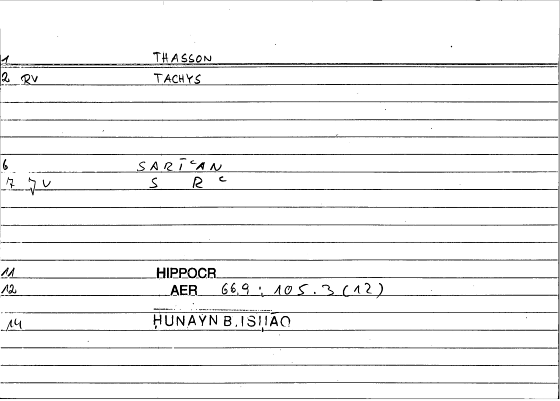 1 THASSON
2 RV TACHYS
6 SARĪʿAN
7 JV S R ʿ
11 HIPPOCR
12 AER 66.9 : 105.3 (12)
14 ḤUNAYN B. ISḤĀQ